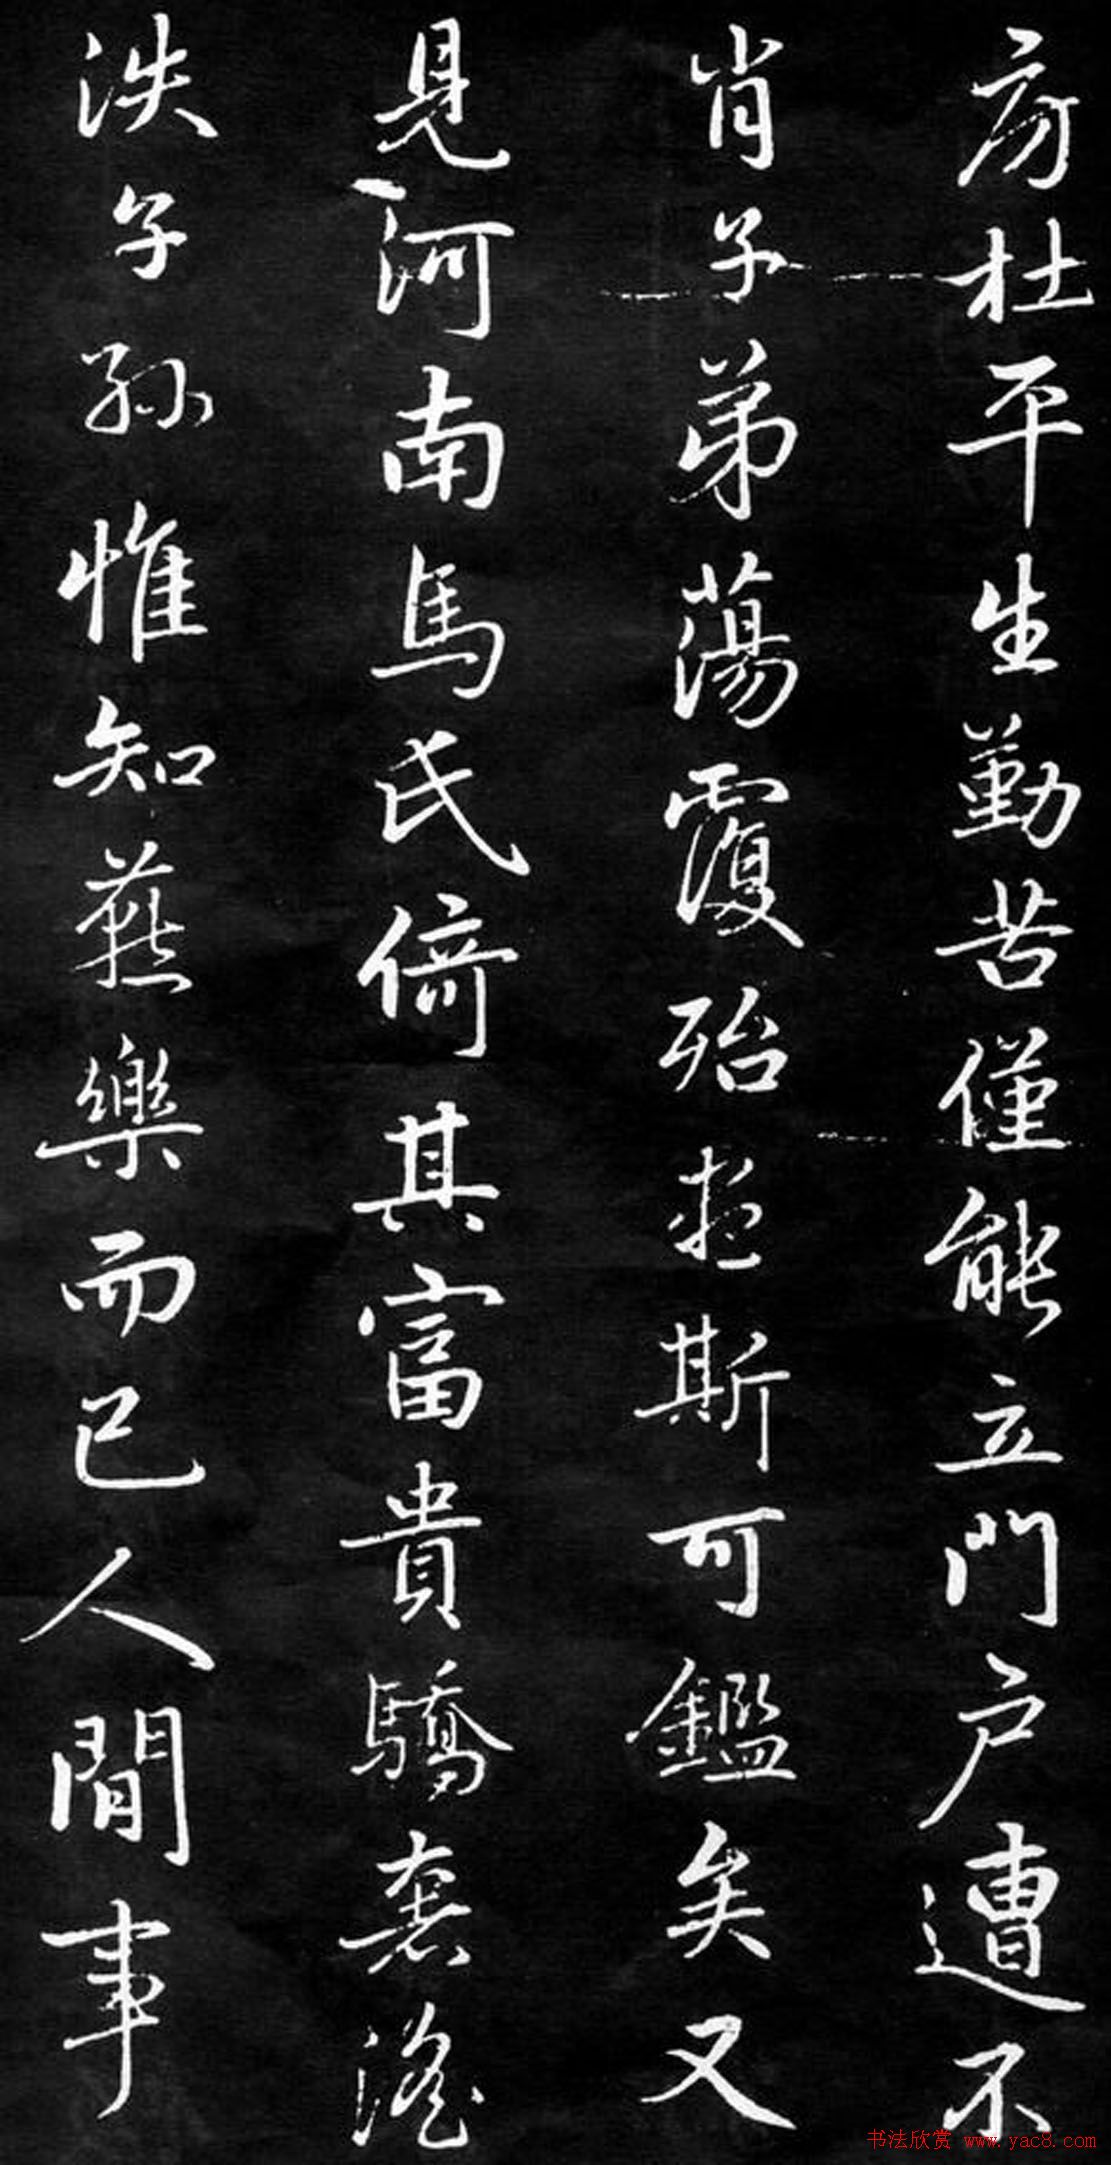 房杜平生勤苦僅能立門戶遭不
肖子弟蕩覆殆盡斯可鑑矣又
見河南馬氏倚其富貴驕奢淫
泆子孫惟知燕樂而已人間事
书法欣赏 www.yac8.com